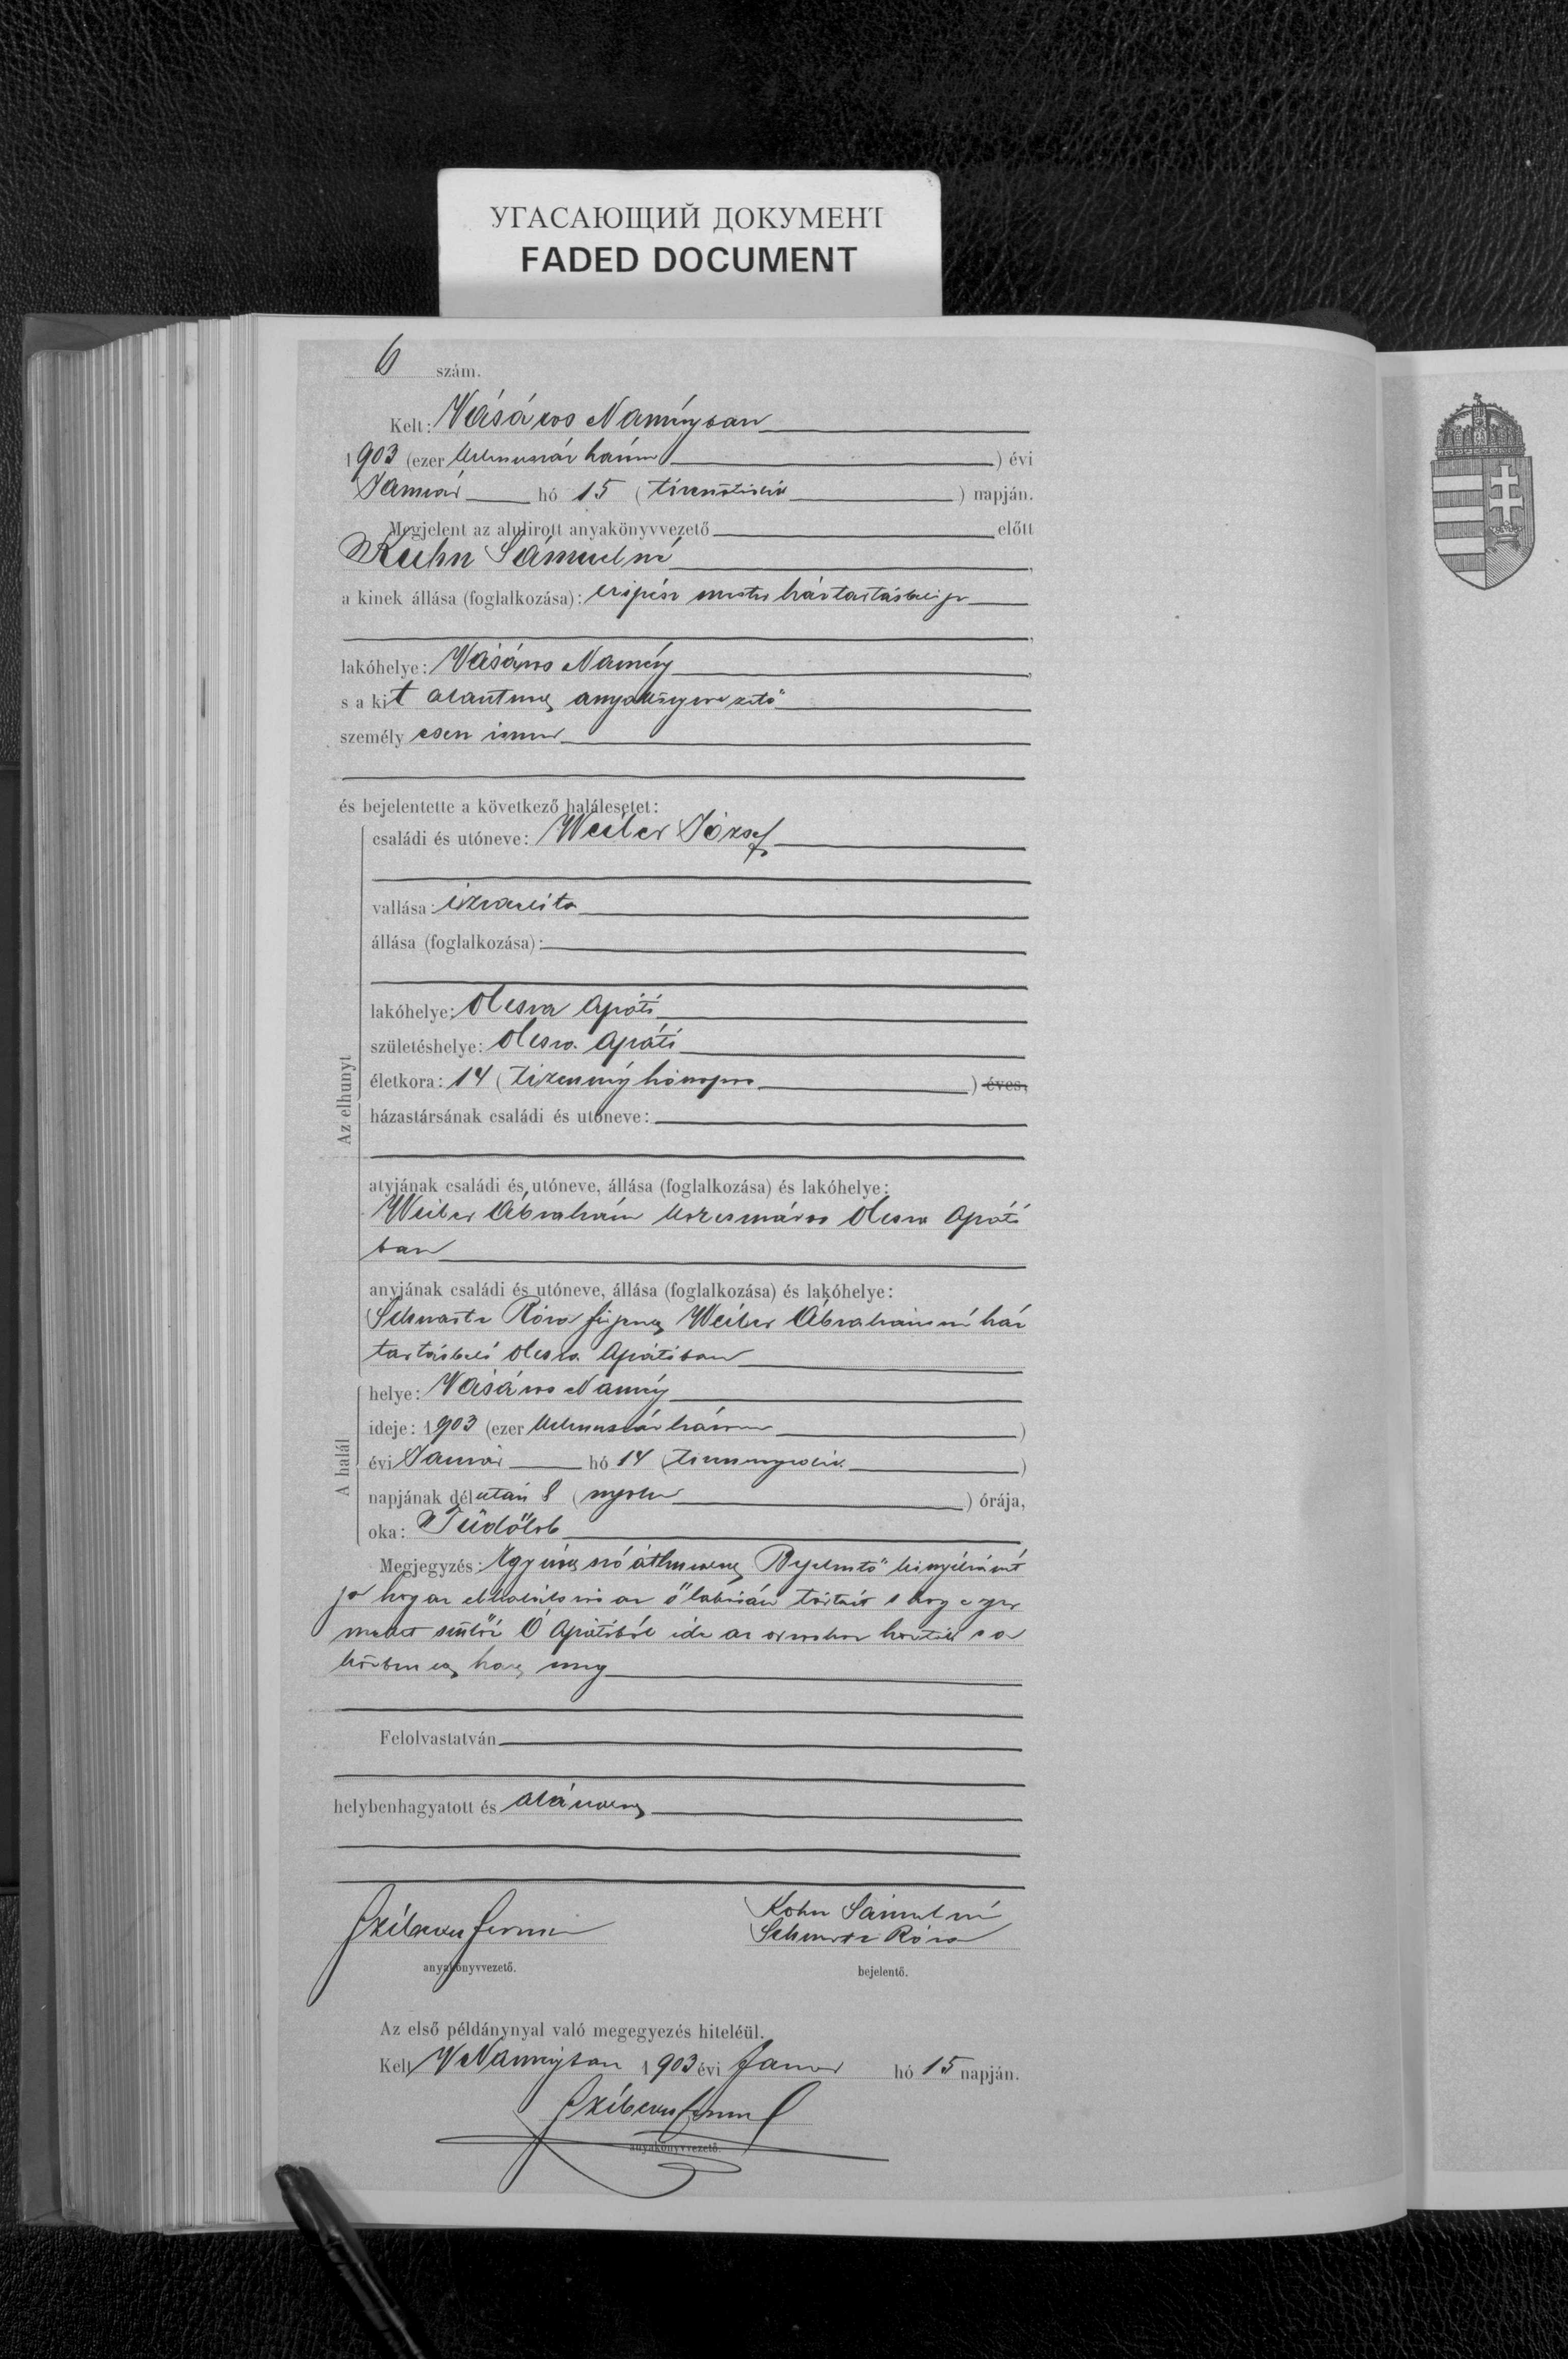 УГАСАЮЩИЙ ДОКУМЕНТ
FADED DOCUMENT
6 szám.
Kelt: Vásáros Naményban
1903 (ezer kilenczszázhárom) évi
Január hó 15 (tizenötödik) napján.
Megjelent az alulirott anyakönyvvezető előtt
Kuhn Sámuelné,
a kinek állása (foglalkozása): háztartásbeli
lakóhelye: Vásáros Namény,
s a kit alantirt anyakönyvvezető
személyesen ismer
és bejelentette a következő halálesetet:
Az elhunyt
családi és utóneve: Weiler József
vallása: izraelita
állása (foglalkozása):
lakóhelye: Olcsva Apáti
születéshelye: Olcsva Apáti
életkora: 14 (tizennégy hónapos) éves,
házastársának családi és utóneve:
atyjának családi és utóneve, állása (foglalkozása) és lakóhelye:
Weiler Ábrahám korcsmáros Olcsva Apáti
ban
anyjának családi és utóneve, állása (foglalkozása) és lakóhelye:
Schwartz Róza férjezett Weiler Ábrahámné ház
tartásbeli Olcsva Apátiban
A halál
helye: Vásáros Namény
ideje: 1903 (ezer kilenczszázhárom)
évi Január hó 14 (tizennegyedik)
napjának délután 8 (nyolcz) órája,
oka: Tüdőlob
Megjegyzés: Egy üres szó áthúzva Bejelentő kinyilvánít
ja hogy az elhalálozás az ő lakásán történt s hogy a gyer
meket szülői O Apátiból ide az orvoshoz hozták s a
közben halt meg
Felolvastatván
helybenhagyatott és aláíratott
Kohn Sámuelné
Schwartz Róza
anyakönyvvezető.
bejelentő.
Az első példánynyal való megegyezés hiteléül.
Kelt V Naményban 1903 évi Január hó 15 napján.
anyakönyvvezető.